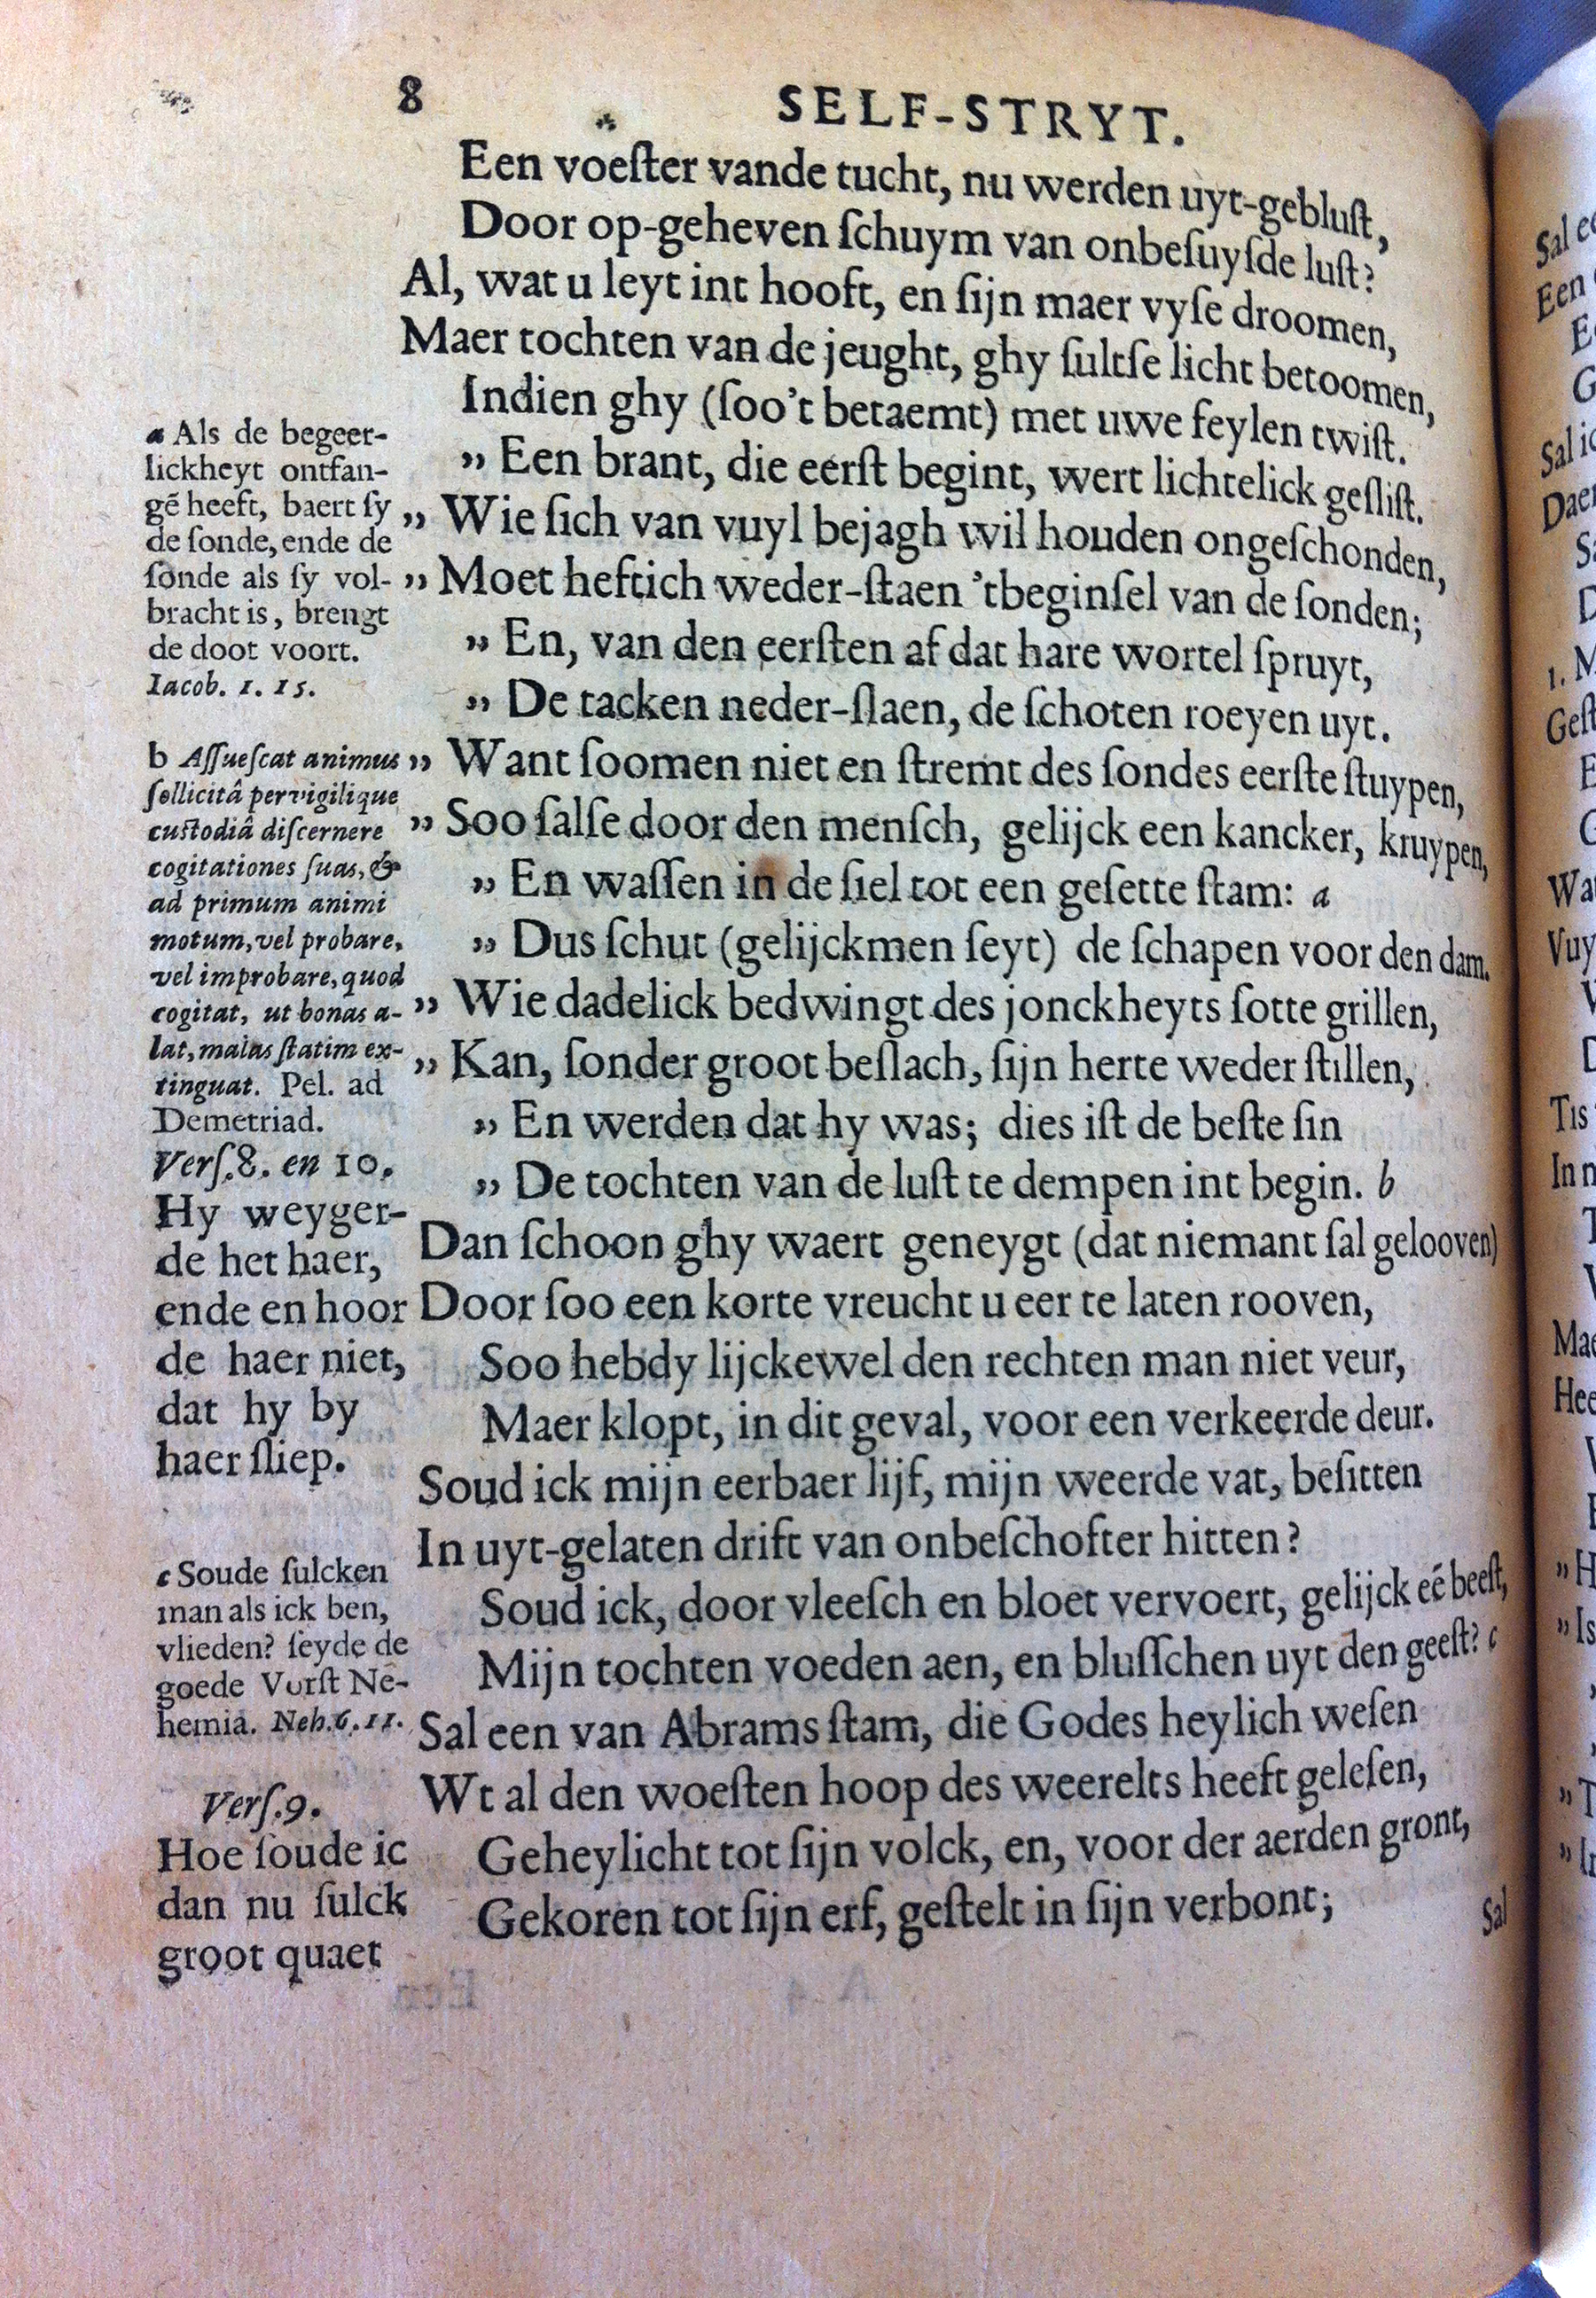 8 SELF-STRYT.
Een voeſter vande tucht, nu werden uyt-gebluſt,
Door op-geheven ſchuym van onbeſuyſde luſt?
Al, wat u leyt int hooft, en ſijn maer vyſe droomen,
Maer tochten van de jeught, ghy ſultſe licht betoomen,
Indien ghy (ſoo't betaemt) met uwe feylen twiſt.
„ Een brant, die eerſt begint, wert lichtelick geſliſt.
„ Wie ſich van vuyl bejagh wil houden ongeſchonden,
„ Moet heftich weder-ſtaen 'tbeginſel van de ſonden;
„ En, van den eerſten af dat hare wortel ſpruyt,
„ De tacken neder-ſlaen, de ſchoten roeyen uyt.
„ Want ſoomen niet en ſtremt des ſondes eerſte ſtuypen,
„ Soo ſalſe door den menſch, gelijck een kancker, kruypen,
„ En waſſen in de ſiel tot een geſette ſtam: a
„ Dus ſchut (gelijckmen ſeyt) de ſchapen voor den dam.
„ Wie dadelick bedwingt des jonckheyts ſotte grillen,
„ Kan, ſonder groot beſlach, ſijn herte weder ſtillen,
„ En werden dat hy was; dies iſt de beſte ſin
„ De tochten van de luſt te dempen int begin. b
Dan ſchoon ghy waert geneygt (dat niemant ſal gelooven)
Door ſoo een korte vreucht u eer te laten rooven,
Soo hebdy lijckewel den rechten man niet veur,
Maer klopt, in dit geval, voor een verkeerde deur.
Soud ick mijn eerbaer lijf, mijn weerde vat, beſitten
In uyt-gelaten drift van onbeſchofter hitten?
Soud ick, door vleeſch en bloet vervoert, gelijck eẽ beeſt,
Mijn tochten voeden aen, en bluſſchen uyt den geeſt? c
Sal een van Abrams ſtam, die Godes heylich weſen
Wt al den woeſten hoop des weerelts heeft geleſen,
Geheylicht tot ſijn volck, en, voor der aerden gront,
Gekoren tot ſijn erf, geſtelt in ſijn verbont;
Sal
a Als de begeer-
lickheyt ontfan-
gẽ heeft, baert ſy
de ſonde, ende de
ſonde als ſy vol-
bracht is, brengt
de doot voort.
Iacob. 1. 15.
b Aſſueſcat animus
ſollicitâ pervigilique
cuſtodiâ diſcernere
cogitationes ſuas, &
ad primum animi
motum, vel probare,
vel improbare, quod
cogitat, ut bonas a-
lat, malas ſtatim ex-
tinguat. Pel. ad
Demetriad.
Verſ. 8. en 10.
Hy weyger-
de het haer,
ende en hoor
de haer niet,
dat hy by
haer ſliep.
c Soude ſulcken
man als ick ben,
vlieden? ſeyde de
goede Vorſt Ne-
hemia. Neh. 6. 11.
Verſ. 9.
Hoe ſoude ic
dan nu ſulck
groot quaet